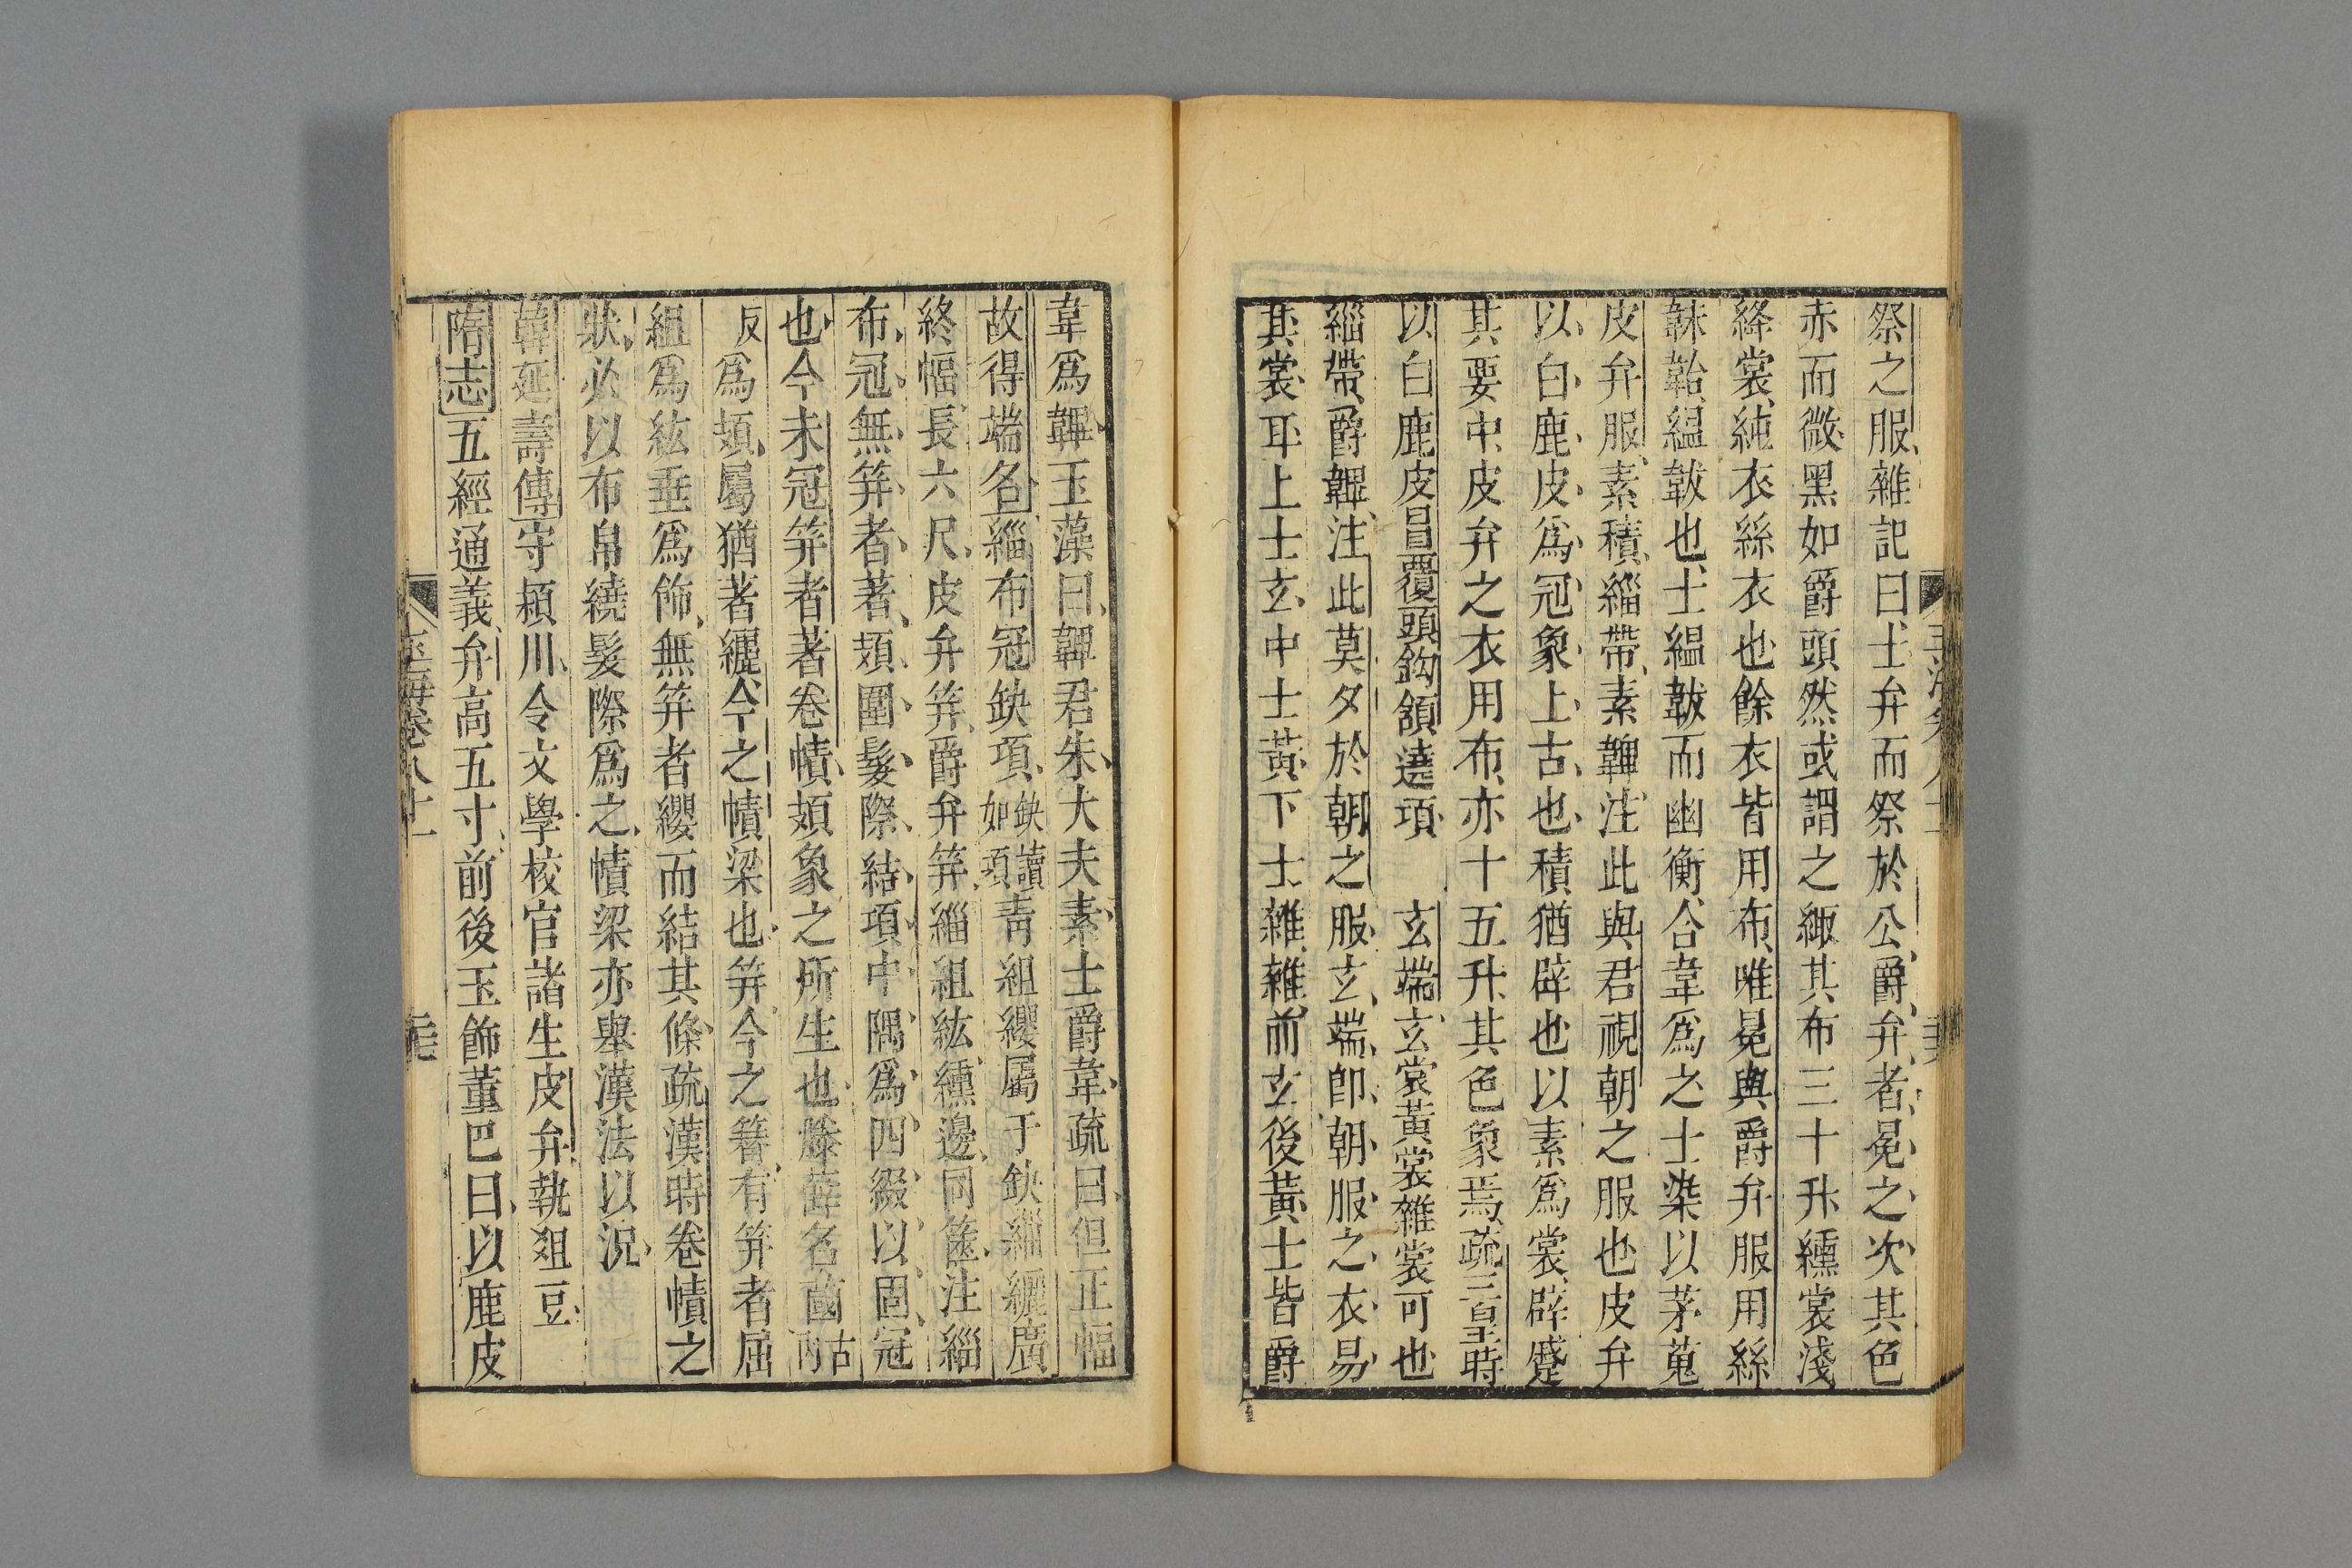 祭之服雜記曰士弁而祭於公爵弁者冕之次其色
赤而微黑如爵頭然或謂之緅其布三十升纁裳淺
絳裳純衣絲衣也餘衣皆用布唯冕與爵弁服用絲
韎韐縕韍也士縕韍而幽衡合韋爲之士染以茅蒐
皮弁服素積緇帶素韠注此與君視朝之服也皮弁
以白鹿皮爲冠象上古也積猶辟也以素爲裳辟蹙
其要中皮弁之衣用布亦十五升其色象焉疏三皇時
以白鹿皮冒覆頭鈎頷遶項 玄端玄裳黃裳雜裳可也
緇帶爵韠注此莫夕於朝之服玄端即朝服之衣易
其裳耳上士玄中士黃下士雜雜前玄後黃士皆爵
韋爲韠玉藻曰韠君朱大夫素士爵韋疏曰但正幅
故得端名緇布冠缺項缺讀如頍青組纓屬于缺緇纚廣
終幅長六尺皮弁笄爵弁笄緇組紘纁邊同篋注緇
布冠無笄者著頍圍髮際結項中隅爲四綴以固冠
也今未冠笄者著卷幘頍象之所生也滕薛名蔮古內
反爲頍屬猶著纚今之幘梁也笄今之簪有笄者屈
組爲紘垂爲飾無笄者纓而結其絛疏漢時卷幘之
狀必以布帛繞髮際爲之幘梁亦舉漢法以況
韓延壽傳守潁川令文學校官諸生皮弁執俎豆
隋志五經通義弁高五寸前後玉飾董巴曰以鹿皮
玉海卷八十二